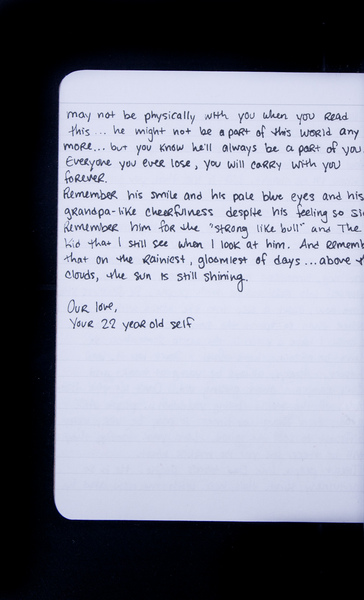 may not be physically with you when you read
this... he might not be a part of this world any
more... but you know he'll always be a part of you.
Everyone you ever lose, you will carry with you
forever.
Remember his smile and his pale blue eyes and his
grandpa-like cheerfulness despite his feeling so
Remember him for the "strong like bull" and The
kid that I still see when I look at him. And
that on the rainiest, gloomiest of days... above
clouds, the sun is still shining.
Our love,
Your 22 year old self